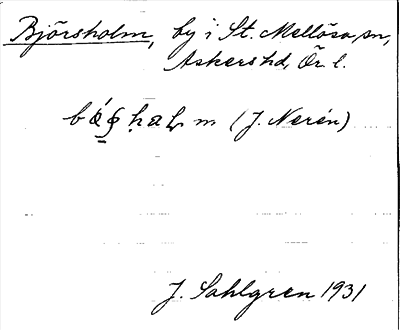 Björsholm, by i St. Mellösa sn,
Askers hd, Ör l.
(J. Nerén)
J. Sahlgren 1931